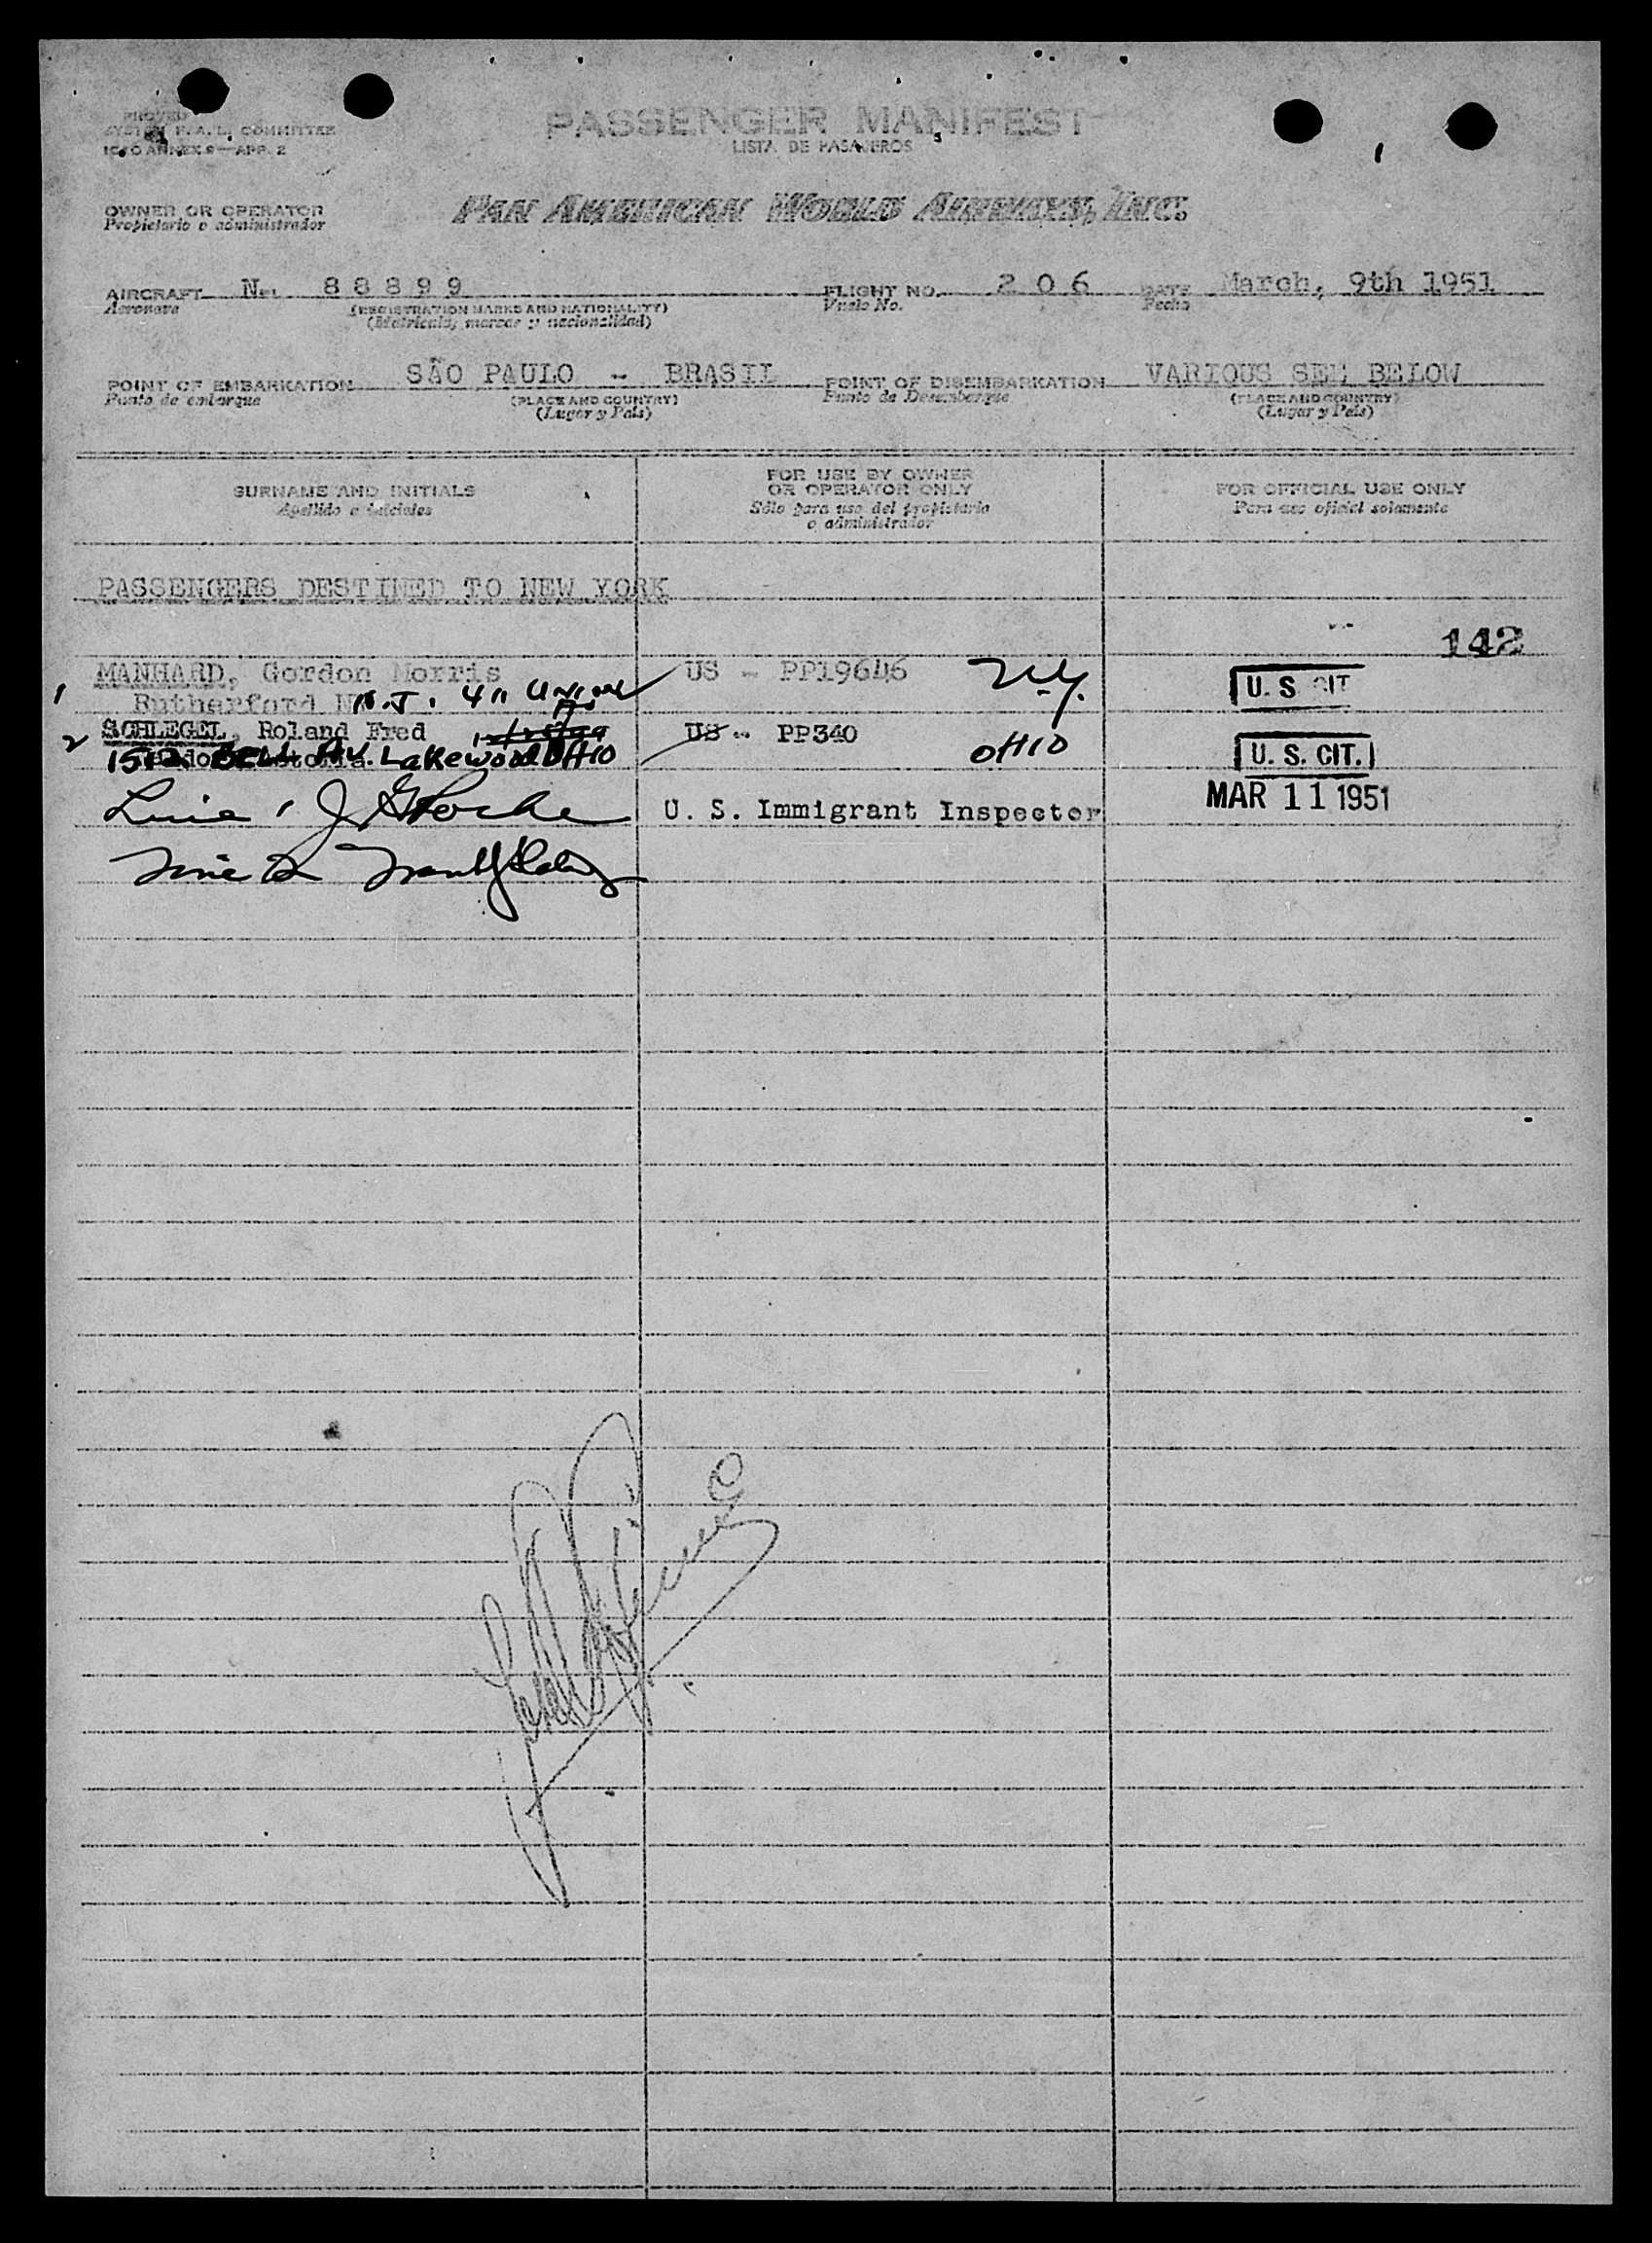 SYSTEM F.A.L. COMMITTEE
ICAO ANNEX 9—APP. 2
PASSENGER MANIFEST
LISTA DE PASAJEROS
OWNER OR OPERATOR
Propietario o administrador
PAN AMERICAN WORLD AIRWAYS, INC.
AIRCRAFT N. 88899 FLIGHT NO. 206 DATE March, 9th 1951
Aeronave (REGISTRATION MARKS AND NATIONALITY) Vuelo No. Fecha
(Matrícula, marcas y nacionalidad)
POINT OF EMBARKATION SÃO PAULO - BRASIL POINT OF DISEMBARKATION VARIOUS SEE BELOW
Punto de embarque (PLACE AND COUNTRY) Punto de Desembarque (PLACE AND COUNTRY)
(Lugar y País) (Lugar y País)
SURNAME AND INITIALS
Apellido e iniciales
FOR USE BY OWNER
OR OPERATOR ONLY
Sólo para uso del propietario
o administrador
FOR OFFICIAL USE ONLY
Para uso oficial solamente
PASSENGERS DESTINED TO NEW YORK
142
1 MANHARD, Gordon Morris US - PP19646 N.Y. U.S CIT
Rutherford N.J. 411 Union Av
2 SCHLEGEL, Roland Fred US - PP340 OHIO U. S. CIT.
Av. Lakewood OHIO
U. S. Immigrant Inspector MAR 11 1951